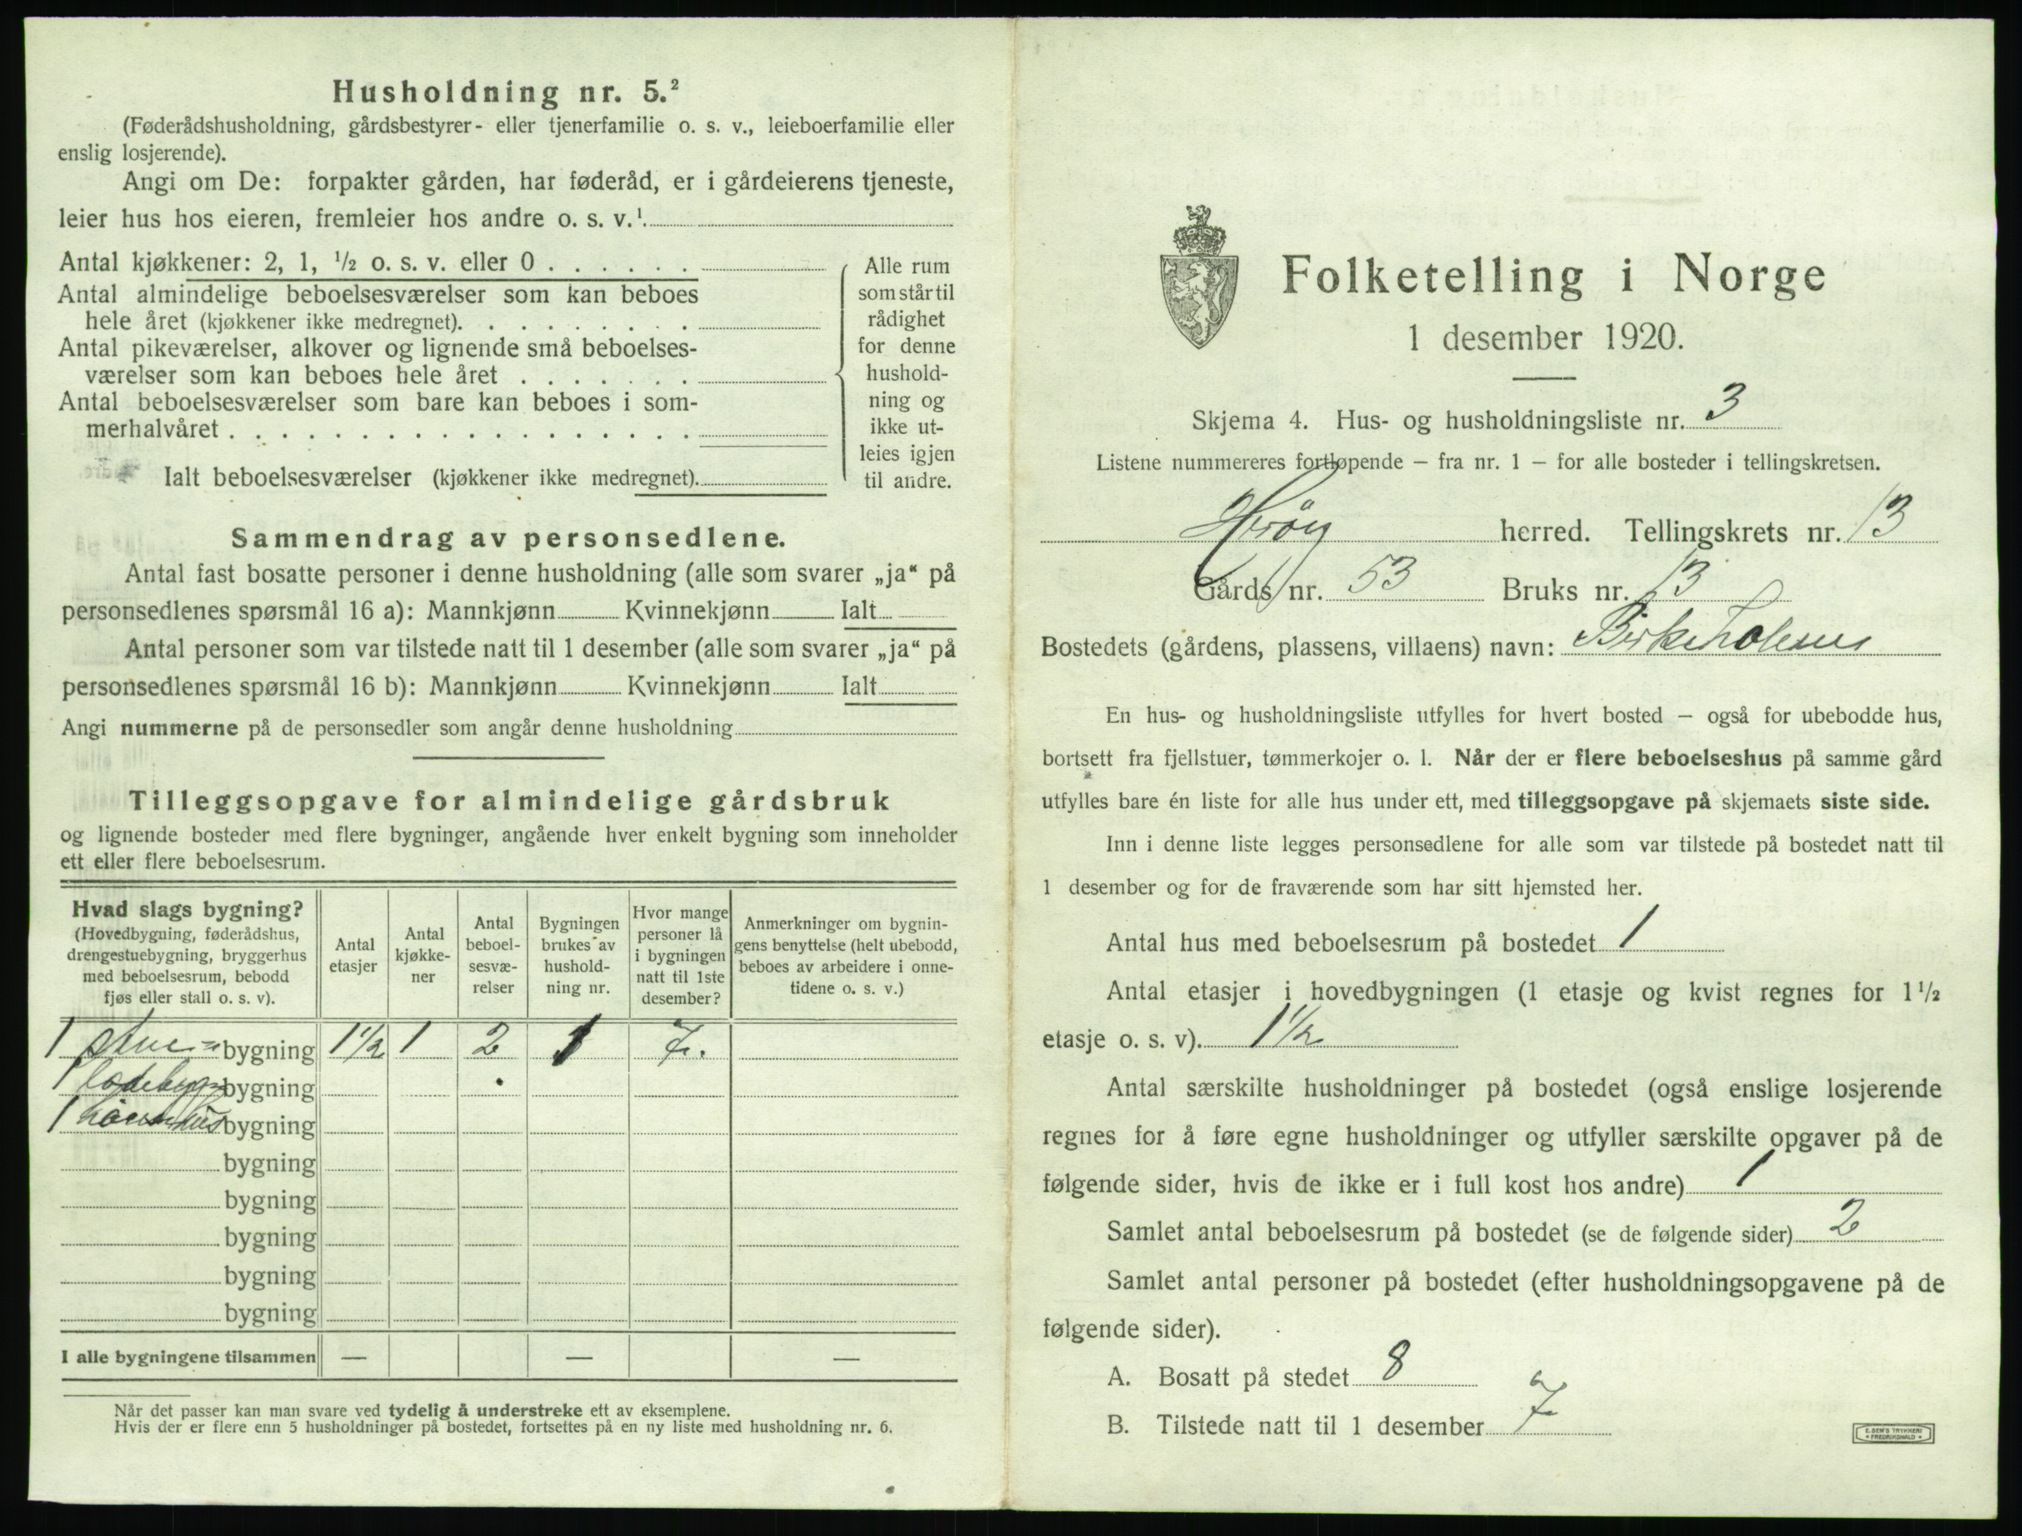 Husholdning nr. 5.²
(Føderådshusholdning, gårdsbestyrer- eller tjenerfamilie o. s. v., leieboerfamilie eller
enslig losjerende).
Angi om De: forpakter gården, har føderåd, er i gårdeierens tjeneste,
leier hus hos eieren, fremleier hos andre o. s. v.¹
Antal kjøkkener: 2, 1, ½ o. s. v. eller 0 . . . . . .
Antal almindelige beboelsesværelser som kan beboes
hele året (kjøkkener ikke medregnet). . . . . . . . .
Antal pikeværelser, alkover og lignende små beboelses-
værelser som kan beboes hele året . . . . . . .
Antal beboelsesværelser som bare kan beboes i som-
merhalvåret . . . . . . . . . . . . . . . . . .
Ialt beboelsesværelser (kjøkkener ikke medregnet).
Alle rum
som står til
rådighet
for denne
hushold-
ning og
ikke ut-
leies igjen
til andre.
Sammendrag av personsedlene.
Antal fast bosatte personer i denne husholdning (alle som svarer „ja“ på
personsedlenes spørsmål 16 a): Mannkjønn Kvinnekjønn Ialt
Antal personer som var tilstede natt til 1 desember (alle som svarer „ja“ på
personsedlenes spørsmål 16 b): Mannkjønn Kvinnekjønn Ialt
Angi nummerne på de personsedler som angår denne husholdning
Tilleggsopgave for almindelige gårdsbruk
og lignende bosteder med flere bygninger, angående hver enkelt bygning som inneholder
ett eller flere beboelsesrum.
Hvad slags bygning?
(Hovedbygning, føderådshus,
drengestuebygning, bryggerhus
med beboelsesrum, bebodd
fjøs eller stall o. s. v).
Antal
etasjer
Antal
kjøkke-
ner
Antal
beboel-
sesvæ-
relser
Bygningen
brukes av
hushold-
ning nr.
Hvor mange
personer lå
i bygningen
natt til 1ste
desember?
Anmerkninger om bygnin-
gens benyttelse (helt ubebodd,
beboes av arbeidere i onne-
tidene o. s. v.)
1 Stue= bygning 1½ 1 2 1 7.
1 bygning
1 bygning
bygning
bygning
bygning
bygning
bygning
I alle bygningene tilsammen — — —
Når det passer kan man svare ved tydelig å understreke ett av eksemplene.
Hvis der er flere enn 5 husholdninger på bostedet, fortsettes på en ny liste med husholdning nr. 6.
Folketelling i Norge
1 desember 1920.
Skjema 4. Hus- og husholdningsliste nr. 3
Listene nummereres fortløpende – fra nr. 1 – for alle bosteder i tellingskretsen.
Herøy herred. Tellingskrets nr. 13
Gårds nr. 53 Bruks nr. 13
Bostedets (gårdens, plassens, villaens) navn:
En hus- og husholdningsliste utfylles for hvert bosted – også for ubebodde hus,
bortsett fra fjellstuer, tømmerkojer o. l. Når der er flere beboelseshus på samme gård
utfylles bare én liste for alle hus under ett, med tilleggsopgave på skjemaets siste side.
Inn i denne liste legges personsedlene for alle som var tilstede på bostedet natt til
1 desember og for de fraværende som har sitt hjemsted her.
Antal hus med beboelsesrum på bostedet 1
Antal etasjer i hovedbygningen (1 etasje og kvist regnes for 1½
etasje o. s. v). 1½
Antal særskilte husholdninger på bostedet (også enslige losjerende
regnes for å føre egne husholdninger og utfyller særskilte opgaver på de
følgende sider, hvis de ikke er i full kost hos andre) 1
Samlet antal beboelsesrum på bostedet (se de følgende sider) 2
Samlet antal personer på bostedet (efter husholdningsopgavene på de
følgende sider).
A. Bosatt på stedet 8
B. Tilstede natt til 1 desember 7